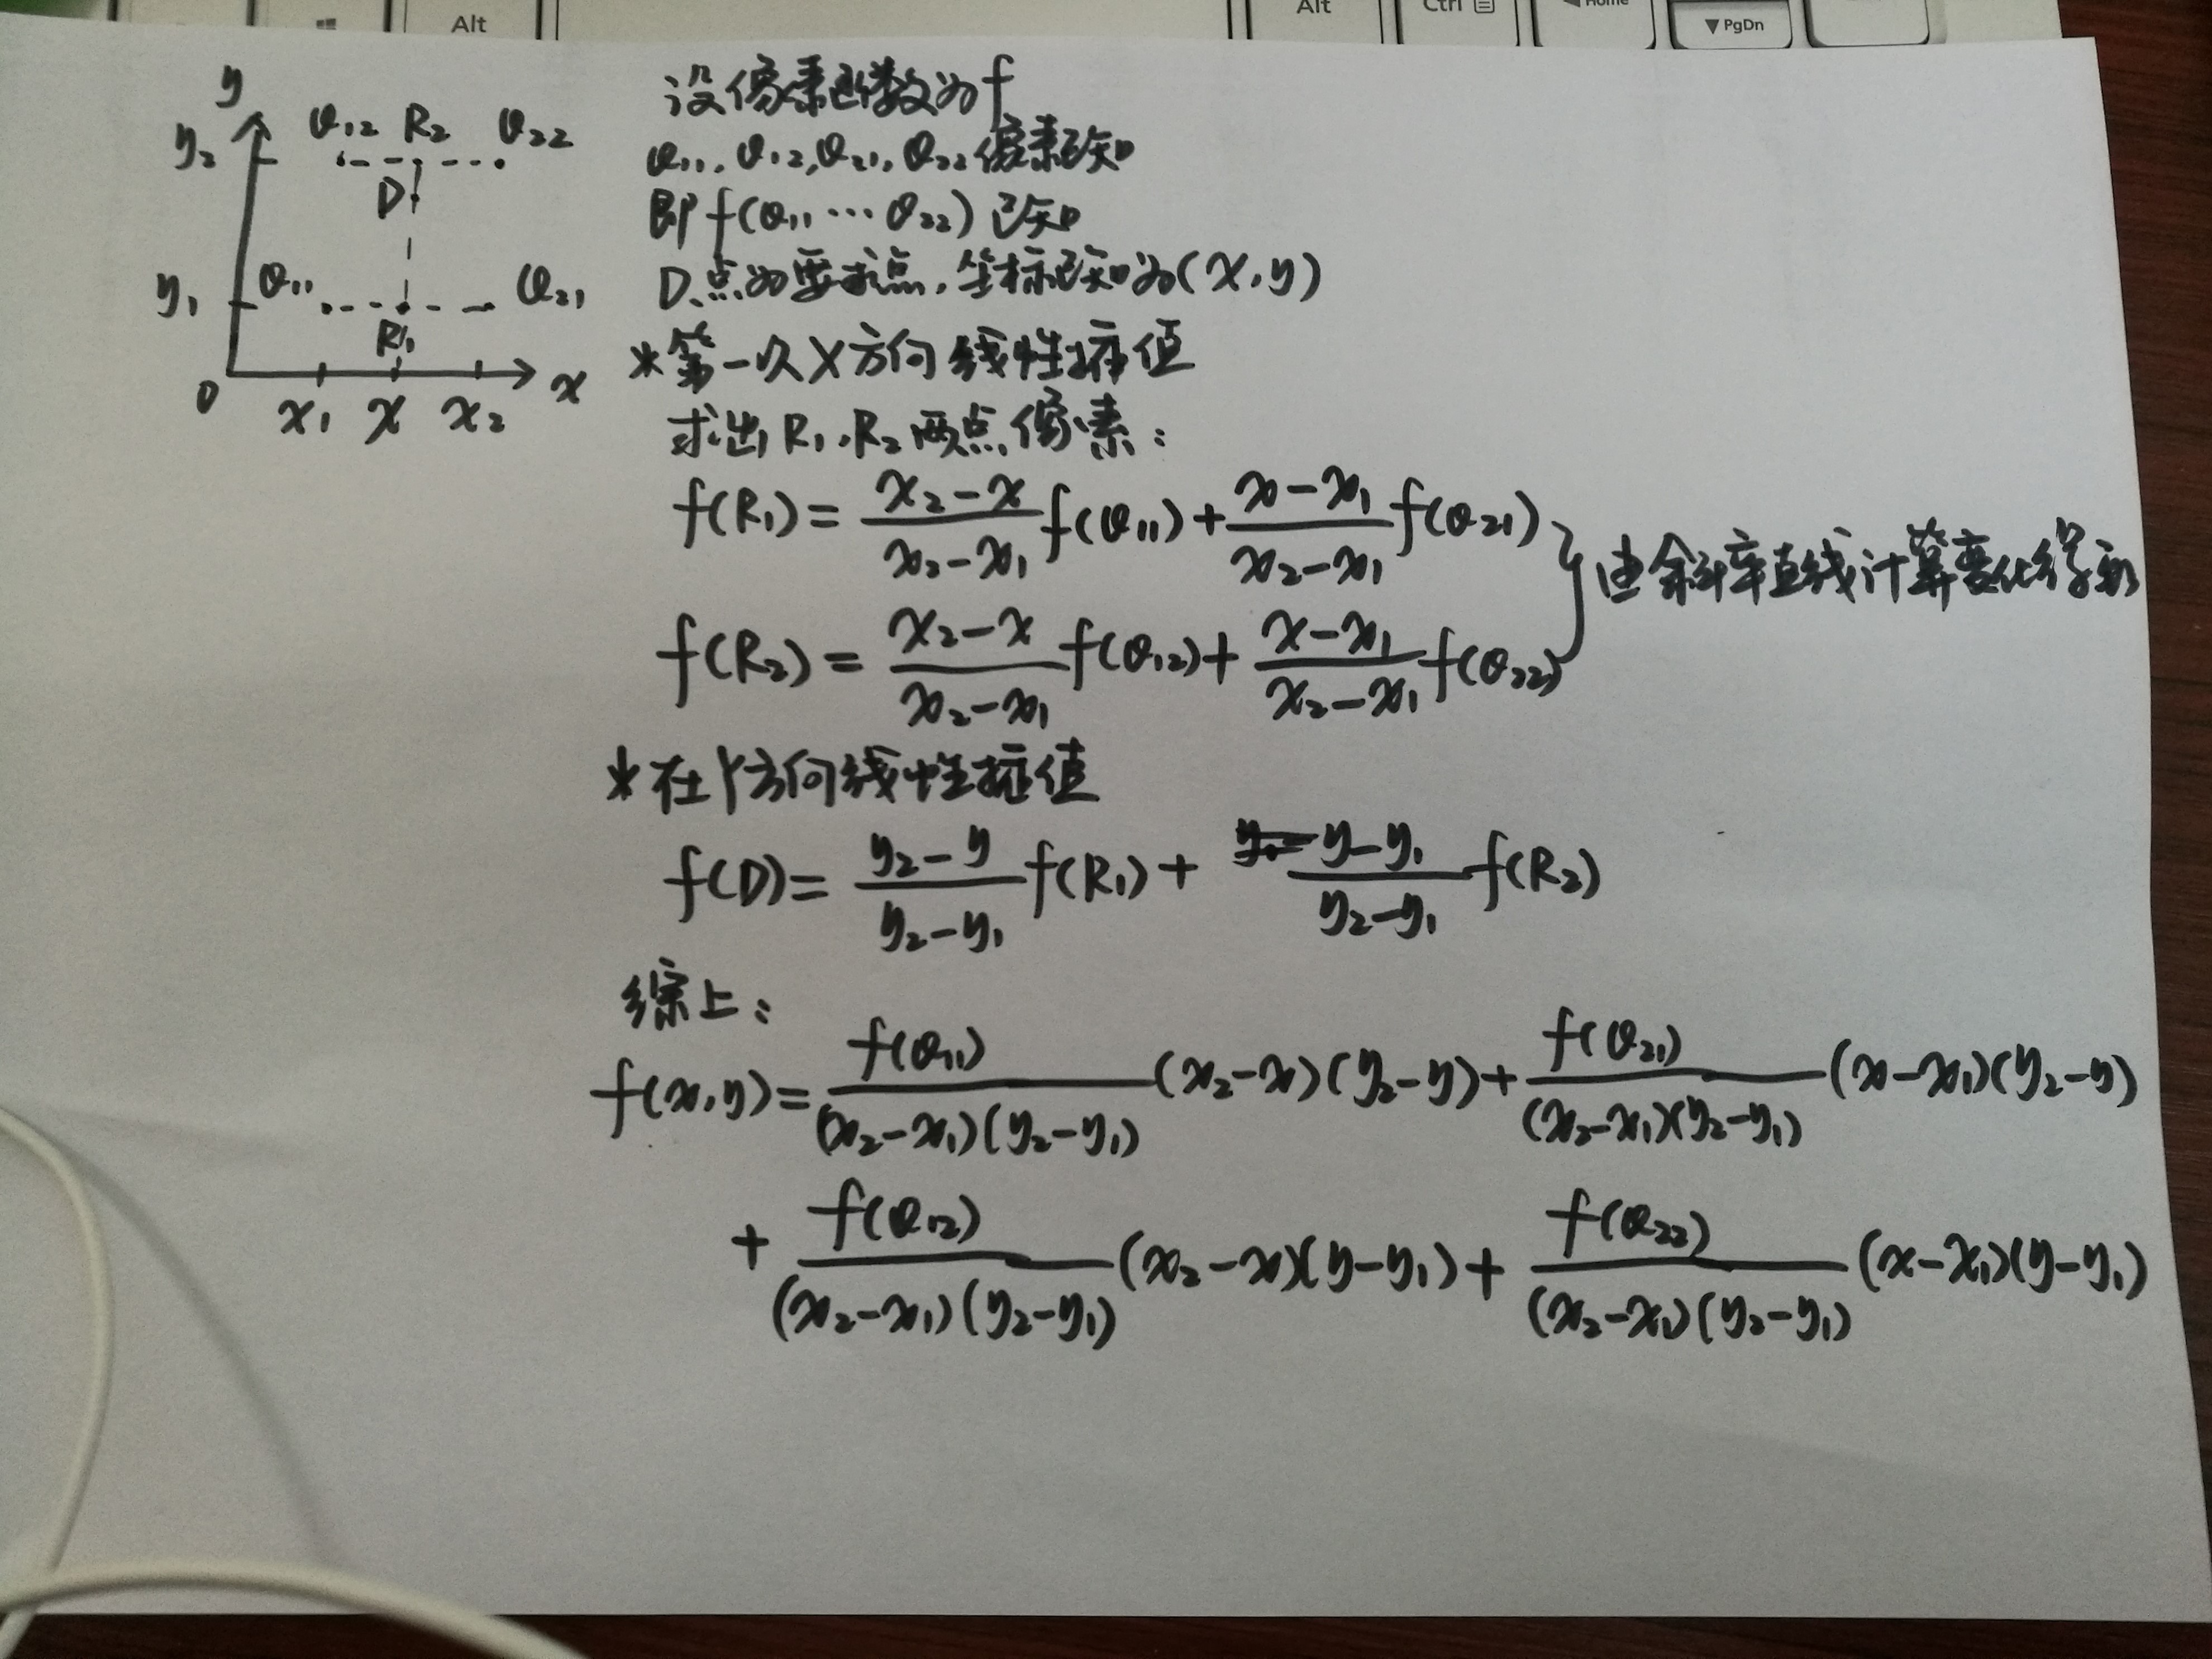 Alt
Alt
Ctrl
Home
▼PgDn
y
y₂
Q₁₂ R₂ Q₂₂
D
y₁
Q₁₁ Q₂₁
R₁
0
x₁ x x₂
x
设像素函数为f
Q₁₁, Q₁₂, Q₂₁, Q₂₂像素已知
即f(Q₁₁…Q₂₂)已知
D点为要求点,坐标已知为(x,y)
*第一次X方向线性插值
求出R₁,R₂两点像素:
f(R₁)=\frac{x₂-x}{x₂-x₁}f(Q₁₁)+\frac{x-x₁}{x₂-x₁}f(Q₂₁)
f(R₂)=\frac{x₂-x}{x₂-x₁}f(Q₁₂)+\frac{x-x₁}{x₂-x₁}f(Q₂₂)
由斜率直线计算变化得到
*在Y方向线性插值
f(D)=\frac{y₂-y}{y₂-y₁}f(R₁)+\frac{y-y₁}{y₂-y₁}f(R₂)
综上:
f(x,y)=\frac{f(Q₁₁)}{(x₂-x₁)(y₂-y₁)}(x₂-x)(y₂-y)+\frac{f(Q₂₁)}{(x₂-x₁)(y₂-y₁)}(x-x₁)(y₂-y)
+\frac{f(Q₁₂)}{(x₂-x₁)(y₂-y₁)}(x₂-x)(y-y₁)+\frac{f(Q₂₂)}{(x₂-x₁)(y₂-y₁)}(x-x₁)(y-y₁)